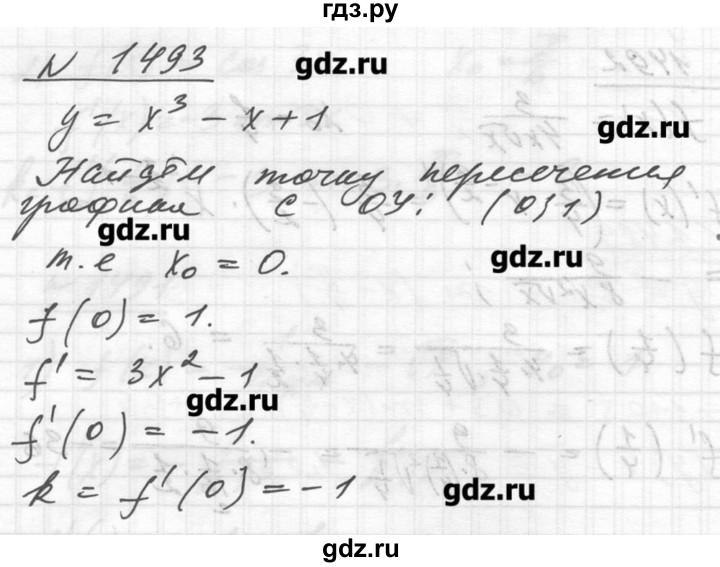 гдз.ру
N 1493
gdz.ru
y = x³ - x + 1
gdz.ru
Найдём точку пересечения
графика с OY: (0; 1)
gdz.ru
т.е x₀ = 0.
gdz.ru
f(0) = 1.
f' = 3x² - 1
gdz.ru
f'(0) = -1.
k = f'(0) = -1
gdz.ru
gdz.ru